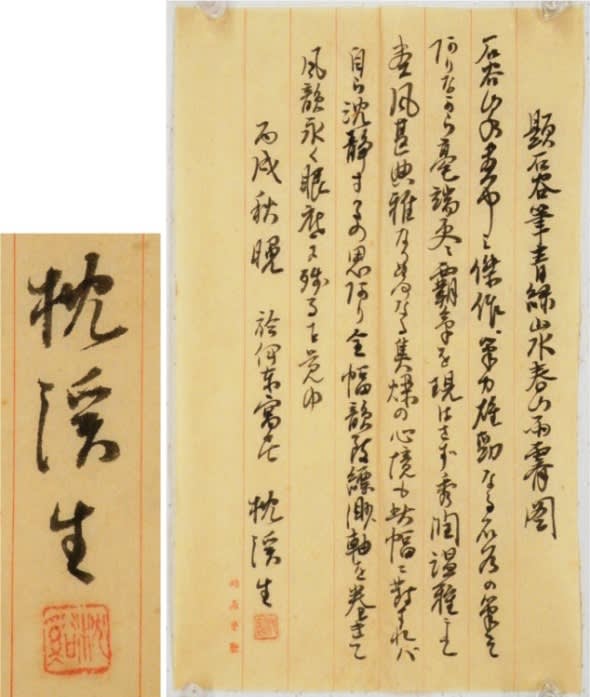 題石谷筆青緑山水春山雨霽図
石谷山水画中之傑作筆力雄勁なる石谷の筆に
ありながら毫端更に覇気を現はさず秀潤温雅にして
画風甚典雅なり なる焦燥の心境も此幅に対すれば
自ら沈静するの思あり全幅韻致縹渺軸を巻きて
風韻永く眼底に残るを覚ゆ
丙戌秋晩 於伊東寓居 枕溪生
枕溪生